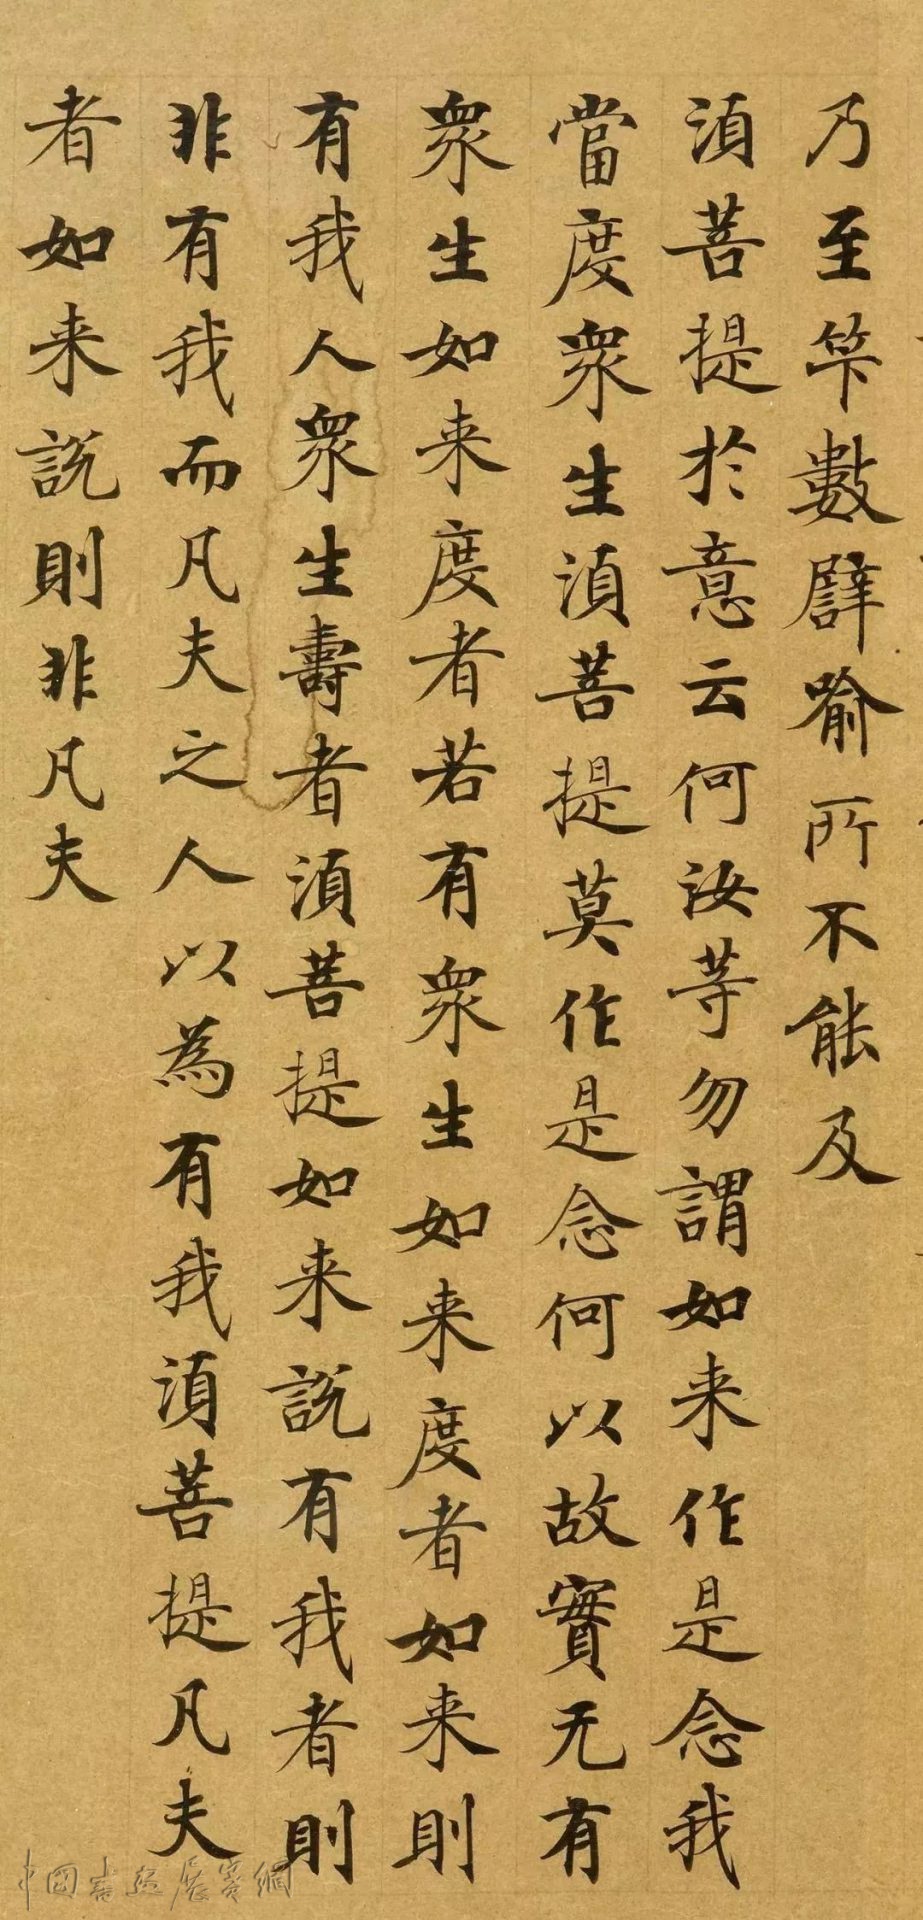 乃至笇數譬喻所不能及
湏菩提於意云何汝等勿謂如来作是念我
當度衆生湏菩提莫作是念何以故實无有
衆生如来度者若有衆生如来度者如来則
有我人衆生壽者湏菩提如来說有我者則
非有我而凡夫之人以為有我湏菩提凡夫
者如来說則非凡夫
中國書法展賽網